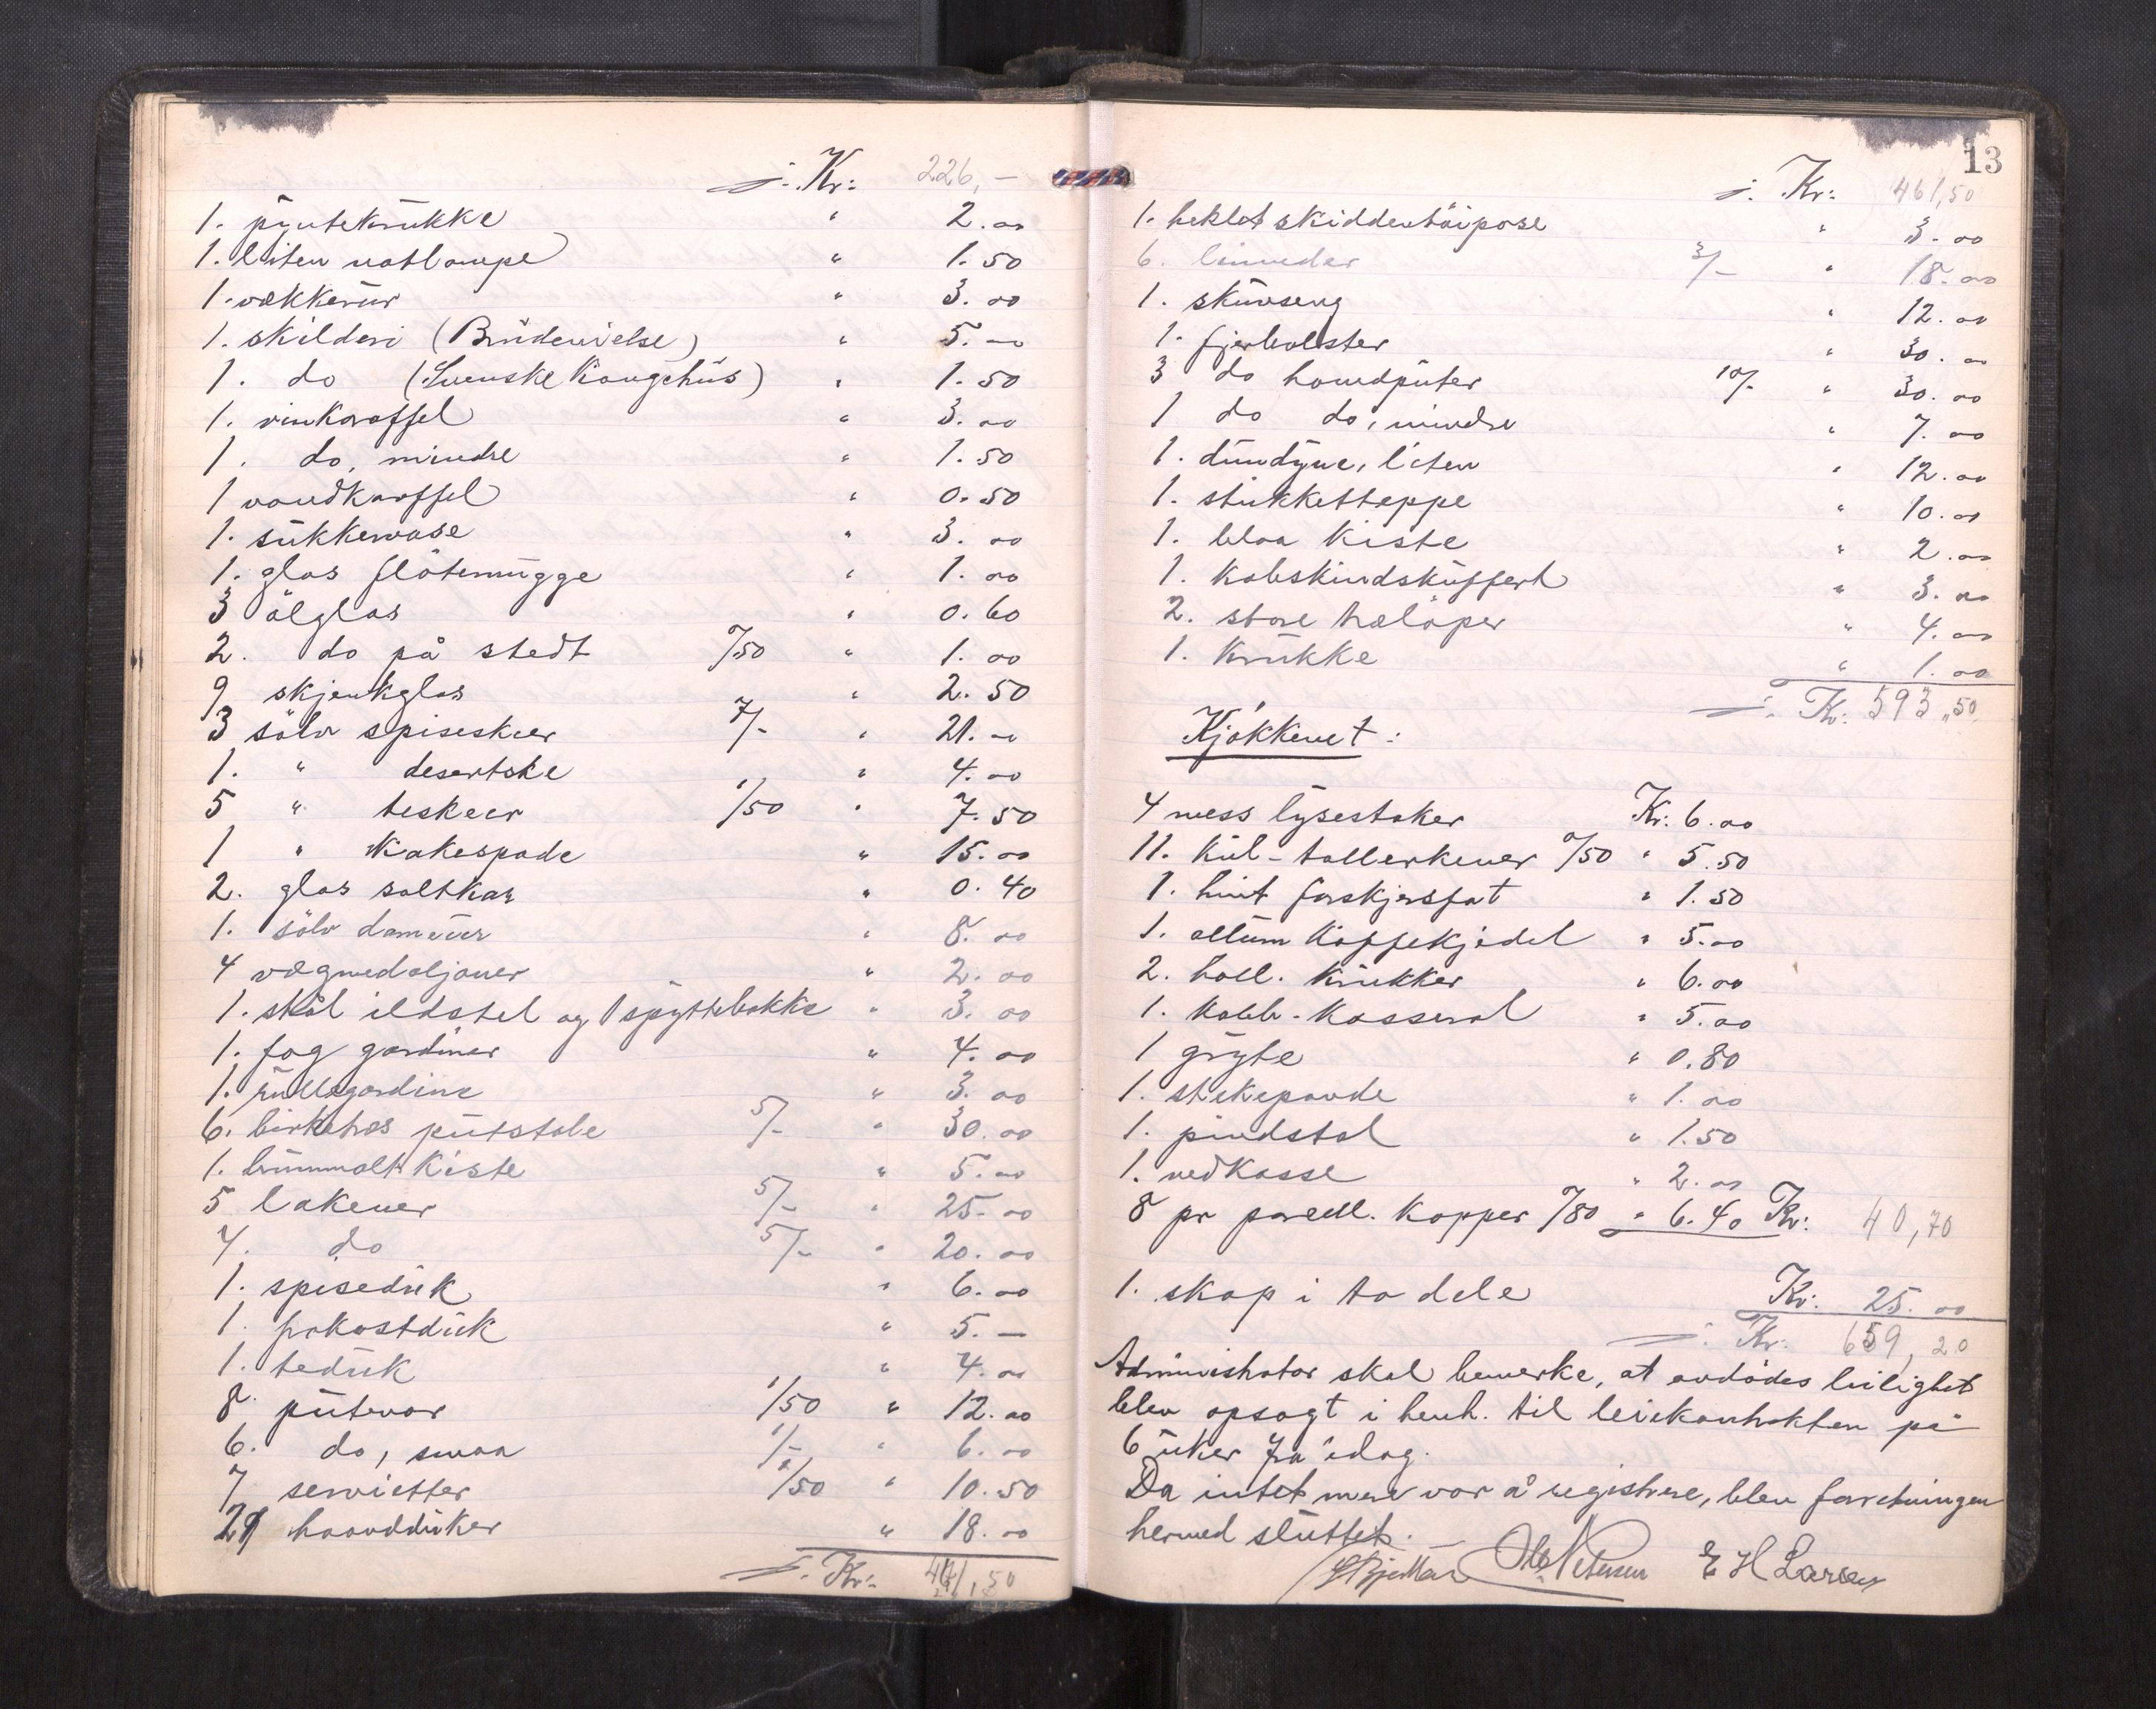 j. Kr: 226,-
1. pyntekrukke " 2.00
1. liten natlampe " 1.50
1. vækkerur " 3.00
1. skilderi (Brudevielse) " 5.00
1. do (Svenske Kongehus) " 1.50
1. vinkaraffel " 3.00
1. do, mindre " 1.50
1 vandkaraffel " 0.50
1. sukkervase " 3.00
1. glas fløtemugge " 1.00
3 ølglas " 0.60
2. do på stedt 0/50 " 1.00
9 skjenkglas " 2.50
3 sølv spiseskeer 7/- " 21.00
1. " desertske " 4.00
5 " teskeer 1/50 " 7.50
1 " Kakespade " 15.00
2. glas saltkar " 0.40
1. sølv dameur " 8.00
4 vægmedaljoner " 2.00
1. stål ildstel og 1 spyttebakke " 3.00
1. fag gardiner " 4.00
1. rullegardine " 3.00
6. birketræs putstole 5/- " 30.00
1. brunmalt Kiste " 5.00
5 lakener 5/- " 25.00
4. do 5/- " 20.00
1. spiseduk " 6.00
1. frokostduk " 5.-
1. teduk " 4.00
8. putevar 1/50 " 12.00
6. do, smaa 1/- " 6.00
7 servietter 1/50 " 10.50
29 haandduker " 18.00
j. Kr: 461,50
13
j. Kr: 461,50
1. heklet skiddentøipose " 3.00
6. linneder 3/- " 18.00
1. skuvseng " 12.00
1. fjerbolster " 30.00
3 do hovedputer 10/- " 30.00
1 do do, mindre " 7.00
1. dundyne, liten " 12.00
1. stukketteppe " 10.00
1. blaa Kiste " 2.00
1. Kobskindskuffert " 3.00
2. store træløper " 4.00
1. Krukke " 1.00
j. Kr: 593,50
Kjøkkenet:
4 mess lysestaker Kr: 6.00
11. kul-tallerkener 0/50 " 5.50
1. hvit forskjærsfat " 1.50
1. allum Kaffekjedel " 5.00
2. holl. Krukker " 6.00
1. Kobb. Kasserol " 5.00
1 gryte " 0.80
1. stekepande " 1.00
1. pindstol " 1.50
1. vedkasse " 2.00
8 pr porcell. Kopper 0/80 " 6.40 Kr: 40,70
1. skap i to dele Kr: 25.00
j. Kr: 659,20
Administrator skal bemerke, at avdødes leilighet
blev opsagt i henh. til leiekontrakten på
6 uker fra idag.
Da intet mere var å registrere, blev forretningen
hermed sluttet.
Petersen E H Larsen